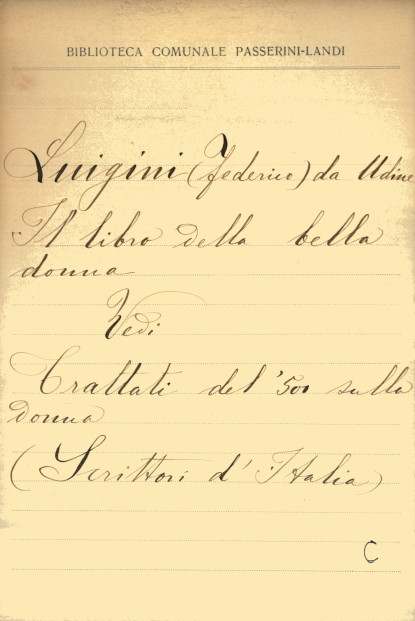 BIBLIOTECA COMUNALE PASSERINI-LANDI
Luigini (Federico) da Udine
Il libro della bella
donna
Vedi
Trattati del '500 sulla
donna
(Scrittori d'Italia)
C